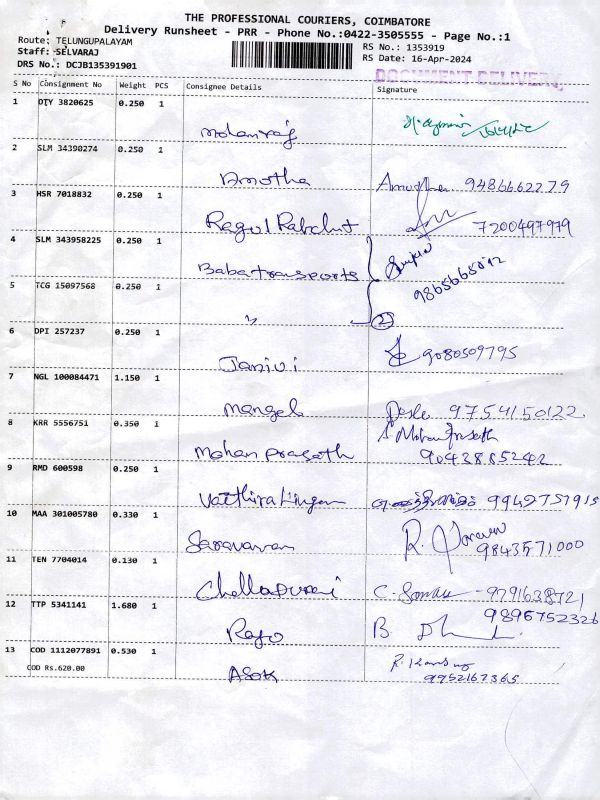 THE PROFESSIONAL COURIERS, COIMBATORE
Delivery Runsheet - PRR - Phone No.:0422-3505555 - Page No.:1
Route: TELUNGUPALAYAM
RS No.: 1353919
Staff: SELVARAJ
RS Date: 16-Apr-2024
DRS No.: DCJB135391901
DOCUMENT DELIVERY
S No Consignment No Weight PCS Consignee Details Signature
1 DTY 3820625 0.250 1
Mohanraj
2 SLM 34390274 0.250 1
Amutha Amudha 9486662279
3 HSR 7018832 0.250 1
Ragul 7200497979
4 SLM 343958225 0.250 1
Babatransports 9865665092
5 TCG 15097568 0.250 1
" 2
6 DPI 257237 0.250 1
Janivi 9080509795
7 NGL 100084471 1.150 1
Mangel 9754150122
8 KRR 5556751 0.350 1
Mohan prasath S. Mohan prasath
9043885242
9 RMD 600598 0.250 1
Vaithiralingam 9942757915
10 MAA 301005780 0.330 1
Saravanan R. Saravan
9843571000
11 TEN 7704014 0.130 1
Chelladurai C. 9791638721
12 TTP 5341141 1.680 1
9895752326
Raju B.
13 COD 1112077891 0.530 1
COD Rs.620.00
Asok 9952167365